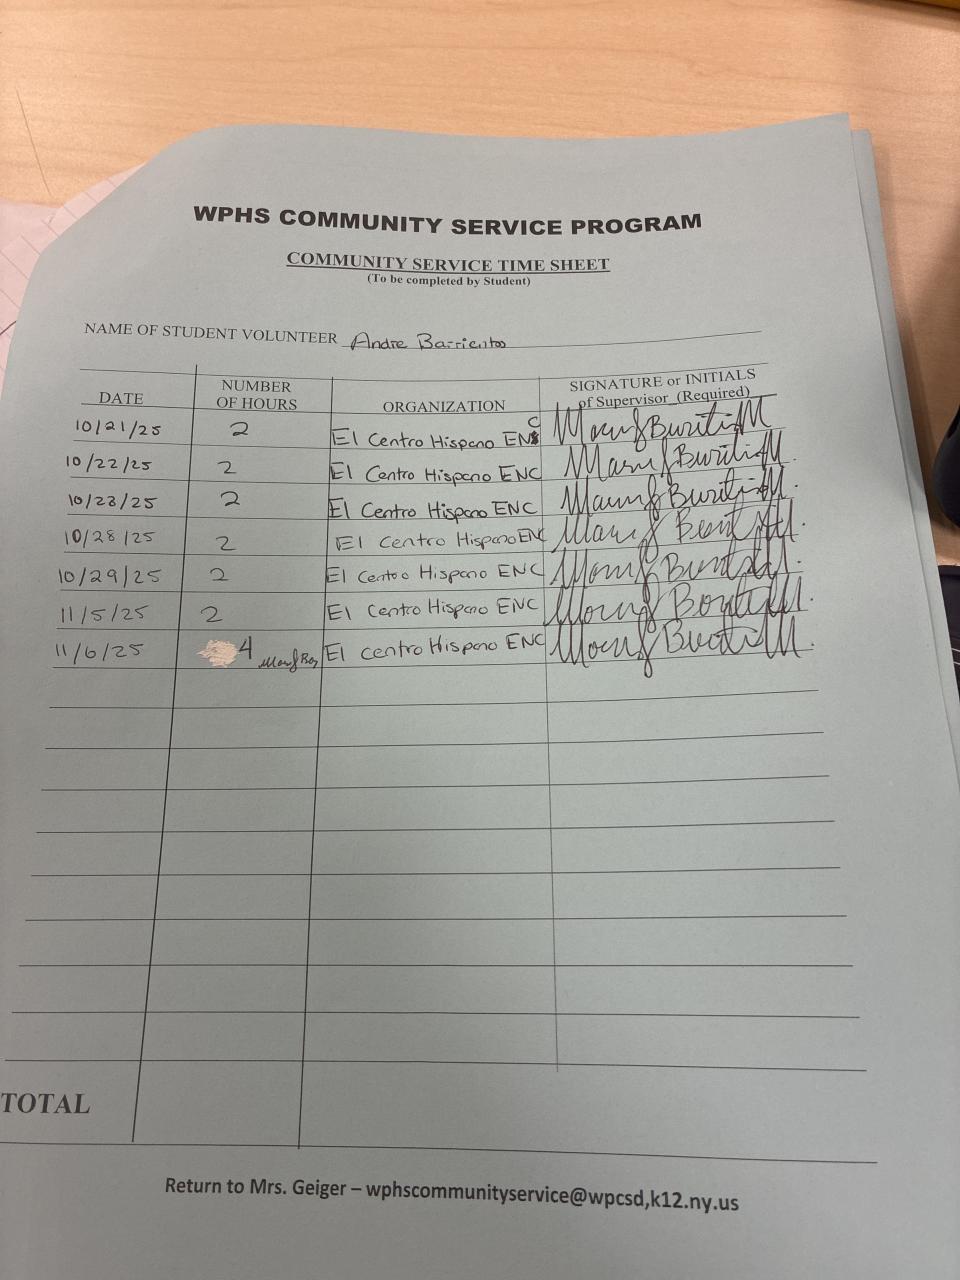 WPHS COMMUNITY SERVICE PROGRAM
COMMUNITY SERVICE TIME SHEET
(To be completed by Student)
NAME OF STUDENT VOLUNTEER Andre Barrientos
DATE NUMBER OF HOURS ORGANIZATION SIGNATURE or INITIALS of Supervisor (Required)
10/21/25 2 El Centro Hispano ENC
10/22/25 2 El Centro Hispano ENC
10/23/25 2 El Centro Hispano ENC
10/28/25 2 El Centro Hispano ENC
10/29/25 2 El Centro Hispano ENC
11/5/25 2 El Centro Hispano ENC
11/6/25 4 El Centro Hispano ENC
TOTAL
Return to Mrs. Geiger – wphscommunityservice@wpcsd,k12.ny.us